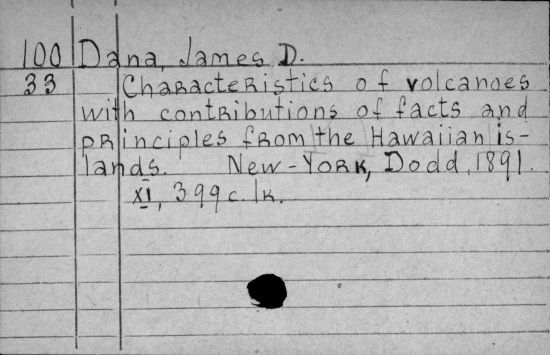 100 Dana, James D.
33 Characteristics of volcanoes
with contributions of facts and
principles from the Hawaiian is-
lands. New-York, Dodd, 1891.
XI, 399 c. 1k.